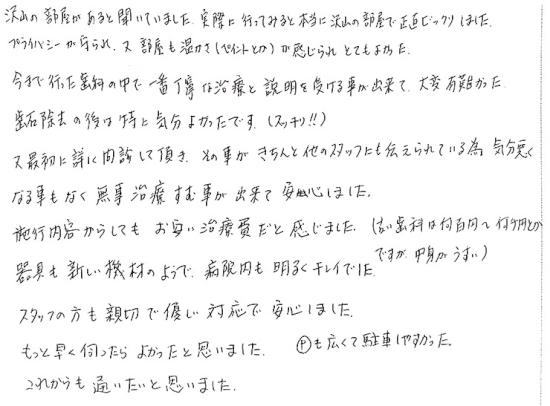 沢山の部屋があると聞いていました。実際に行ってみると本当に沢山の部屋で正直ビックリしました。
プライバシーが守られ、又部屋も温かさ(ペイントとか)が感じられとてもよかった。
今まで行った歯科の中で一番丁寧な治療と説明を受ける事が出来て、大変有難かった。
歯石除去の後は特に気分よかったです。(スッキリ!!)
又最初に詳しく問診して頂き、その事がきちんと他のスタッフにも伝えられている為、気分悪く
なる事もなく無事治療すむ事が出来て安心しました。
施行内容からしてもお安い治療費だと感じました。(古い歯科は何百円〜何ヶ月とか
ですが、中身がうすい)
器具も新しい機材のようで、病院内も明るくキレイでした。
スタッフの方も親切で優しい対応で安心しました。
もっと早く伺ったらよかったと思いました。
Ⓟも広くて駐車しやすかった。
これからも通いたいと思いました。